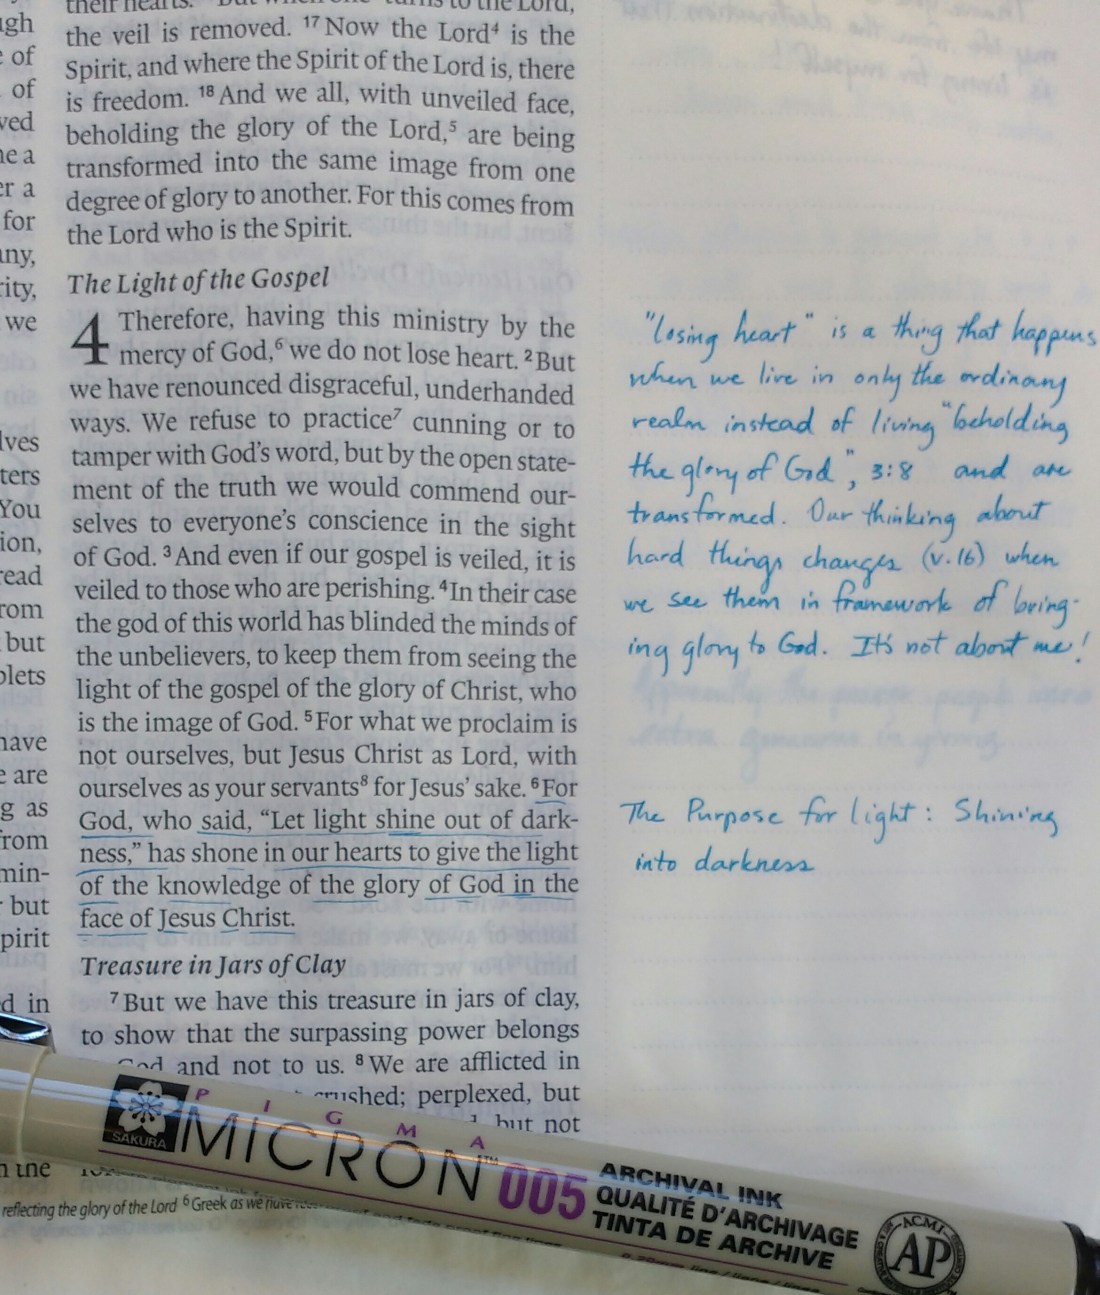 their hearts. But when one turns to the Lord,
the veil is removed. 17 Now the Lord4 is the
Spirit, and where the Spirit of the Lord is, there
is freedom. 18 And we all, with unveiled face,
beholding the glory of the Lord,5 are being
transformed into the same image from one
degree of glory to another. For this comes from
the Lord who is the Spirit.
The Light of the Gospel
4 Therefore, having this ministry by the
mercy of God,6 we do not lose heart. 2 But
we have renounced disgraceful, underhanded
ways. We refuse to practice7 cunning or to
tamper with God's word, but by the open state-
ment of the truth we would commend our-
selves to everyone's conscience in the sight
of God. 3 And even if our gospel is veiled, it is
veiled to those who are perishing. 4 In their case
the god of this world has blinded the minds of
the unbelievers, to keep them from seeing the
light of the gospel of the glory of Christ, who
is the image of God. 5 For what we proclaim is
not ourselves, but Jesus Christ as Lord, with
ourselves as your servants8 for Jesus' sake. 6 For
God, who said, "Let light shine out of dark-
ness," has shone in our hearts to give the light
of the knowledge of the glory of God in the
face of Jesus Christ.
Treasure in Jars of Clay
7 But we have this treasure in jars of clay,
to show that the surpassing power belongs
God and not to us. 8 We are afflicted in
crushed; perplexed, but
but not
reflecting the glory of the Lord 6 Greek as we have
"losing heart" is a thing that happens
when we live in only the ordinary
realm instead of living "beholding
the glory of God", 3:8 and are
transformed. Our thinking about
hard things changes (v.16) when
we see them in framework of bring-
ing glory to God. It's not about me!
The Purpose for light: Shining
into darkness
of
of
for
we
You
read
but
have
are
as
but
in
SAKURA
PIGMA
MICRON™ 005
ARCHIVAL INK
QUALITÉ D'ARCHIVAGE
TINTA DE ARCHIVE
ACMI
AP